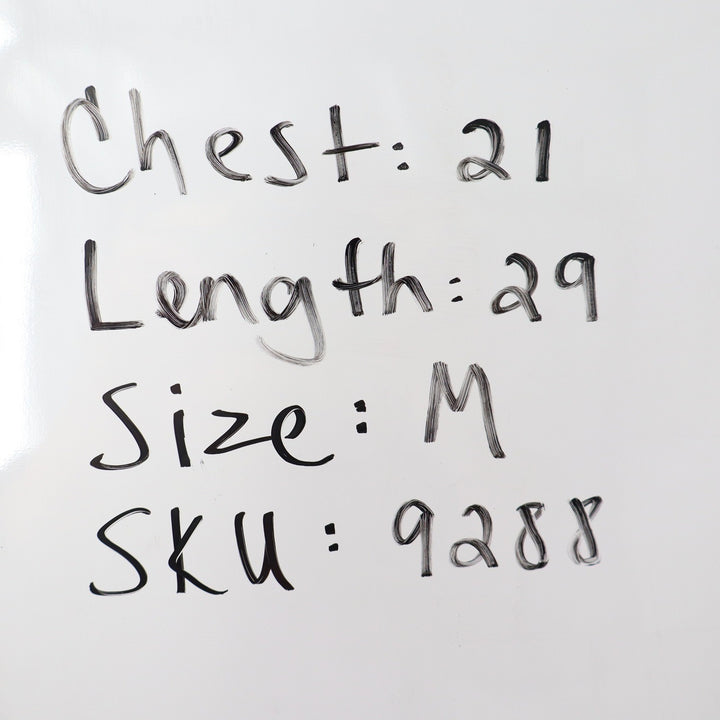 Chest: 21
Length: 29
Size: M
SKU: 9288